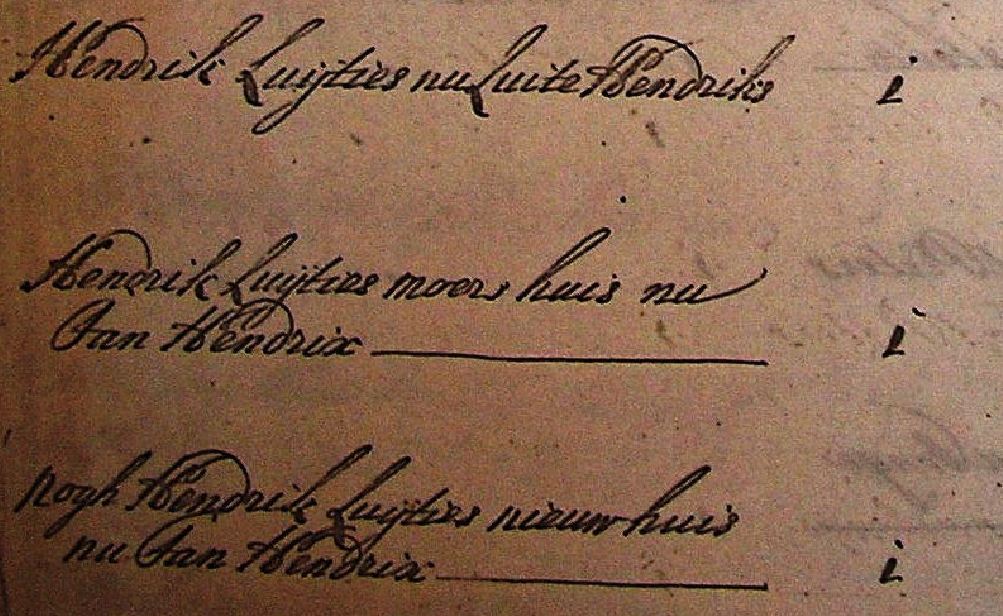 Hendrik Luijties nu Luite Hendriks i
Hendrik Luijties moers huis nu
Jan Hendrix i
nogh Hendrik Luijties nieuw huis
nu Jan Hendrix i